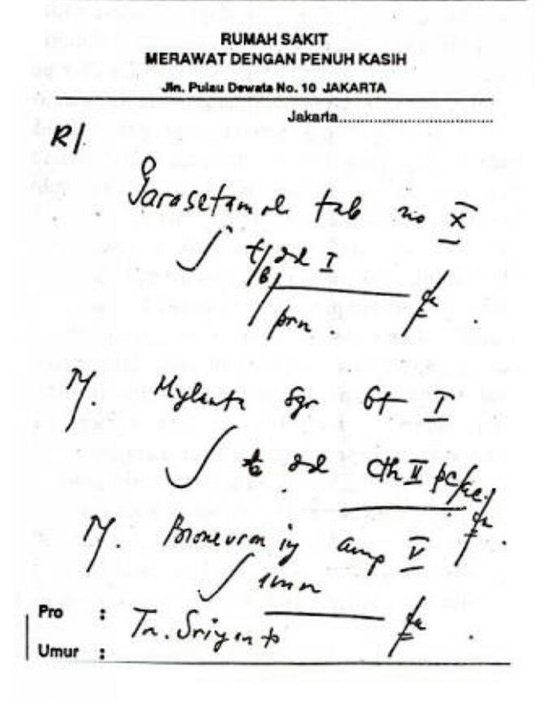 RUMAH SAKIT
MERAWAT DENGAN PENUH KASIH
Jln. Pulau Dewata No. 10 JAKARTA
Jakarta
R/
Parasetamol tab no X
∫ t/b dd I
prn.
R/. Mylanta syr bt I
∫ dd Cth II pc/ac
R/. Bioneuron inj amp V
∫ imm
Pro : Tn. Sriyanto
Umur :